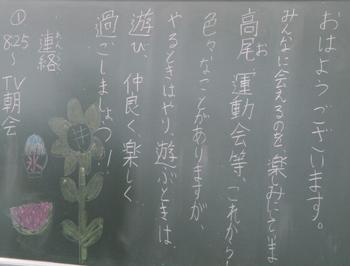 おはようございます。
みんなに会えるのを、楽みにしていま
高尾、運動会等、これから
色々なことがありますが、
やるときはやり、遊ぶときは
遊び、仲良く楽しく
過ごしましょう!
れんらく
連絡
①825~TV朝会
氷